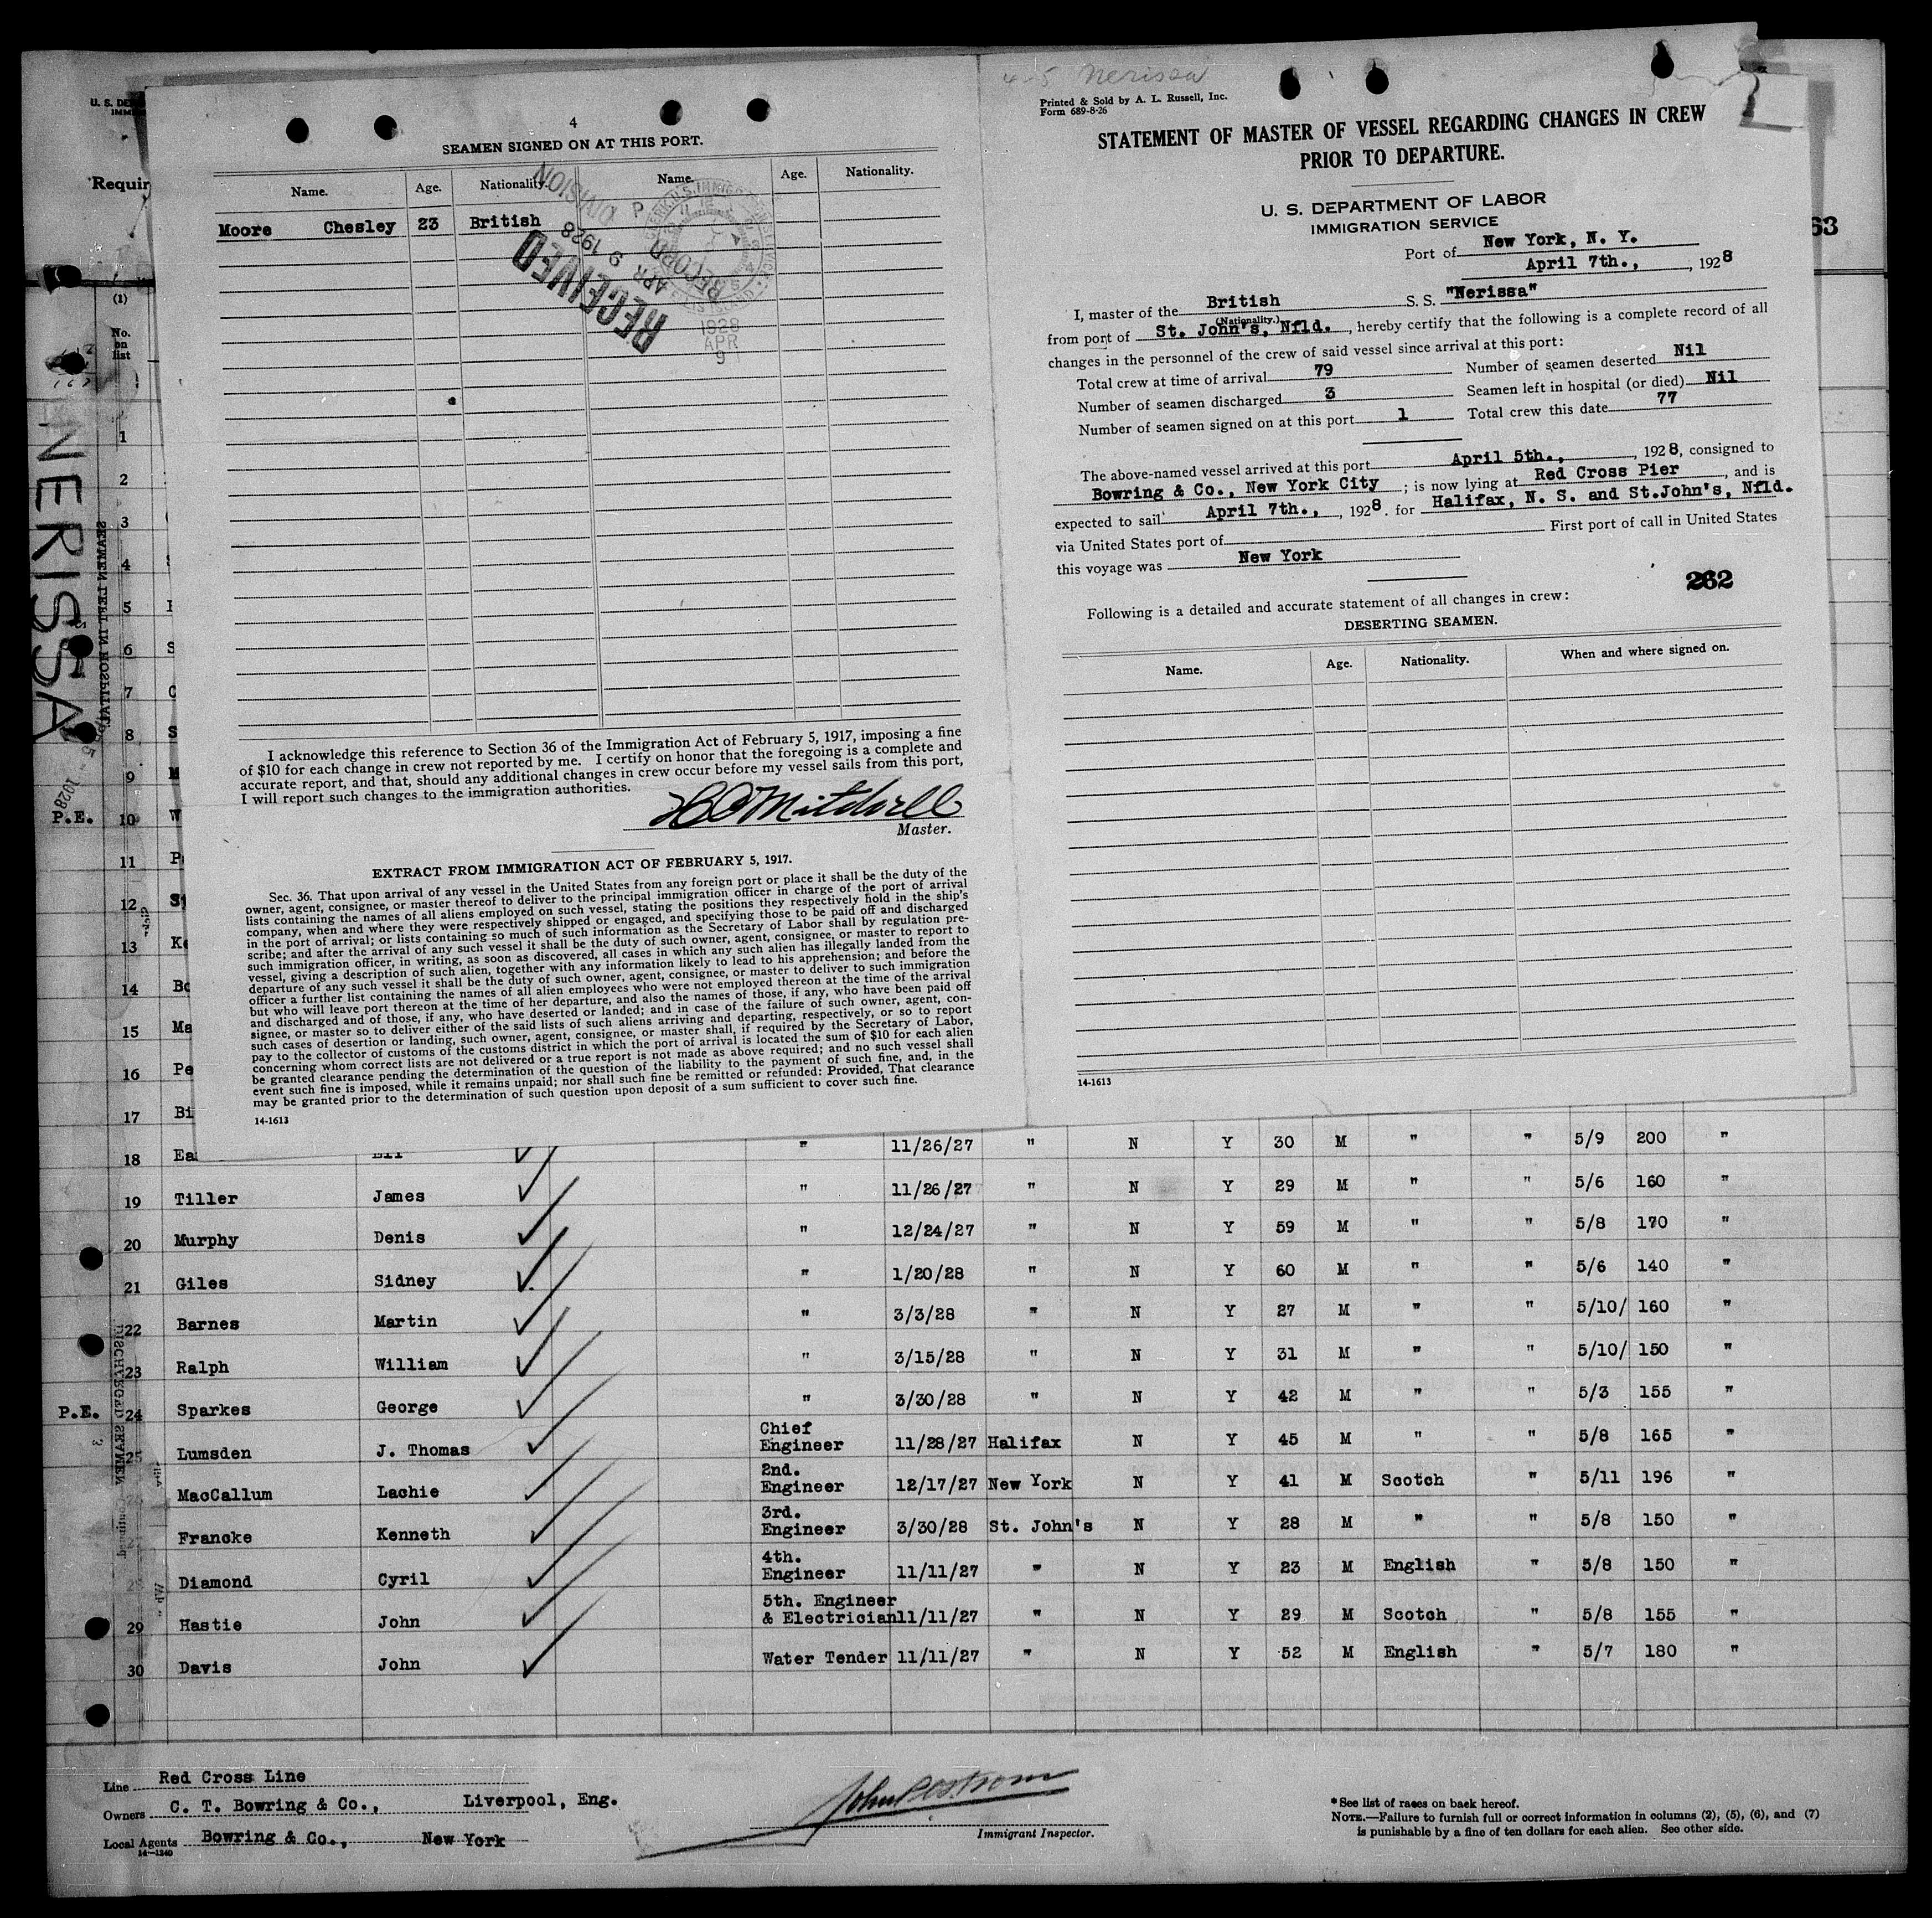 4-5 Nerissa
Printed & Sold by A. L. Russell, Inc.
Form 689-8-26
STATEMENT OF MASTER OF VESSEL REGARDING CHANGES IN CREW
PRIOR TO DEPARTURE.
U. S. DEPARTMENT OF LABOR
IMMIGRATION SERVICE
Port of New York, N. Y.
April 7th., , 1928
I, master of the British S. S. "Nerissa"
(Nationality.)
from port of St. John's, Nfld. , hereby certify that the following is a complete record of all
changes in the personnel of the crew of said vessel since arrival at this port:
Total crew at time of arrival 79 Number of seamen deserted Nil
Number of seamen discharged 3 Seamen left in hospital (or died) Nil
Number of seamen signed on at this port 1 Total crew this date 77
The above-named vessel arrived at this port April 5th., , 1928, consigned to
Bowring & Co., New York City ; is now lying at Red Cross Pier , and is
expected to sail April 7th., , 1928. for Halifax, N. S. and St.John's, Nfld.
via United States port of First port of call in United States
this voyage was New York
262
Following is a detailed and accurate statement of all changes in crew:
DESERTING SEAMEN.
Name. Age. Nationality. When and where signed on.
14-1613
4
SEAMEN SIGNED ON AT THIS PORT.
Name. Age. Nationality. Name. Age. Nationality.
Moore Chesley 23 British
RECEIVED
APR 9 1928
RECORD DIVISION
1928
APR
9
I acknowledge this reference to Section 36 of the Immigration Act of February 5, 1917, imposing a fine
of $10 for each change in crew not reported by me. I certify on honor that the foregoing is a complete and
accurate report, and that, should any additional changes in crew occur before my vessel sails from this port,
I will report such changes to the immigration authorities.
Mitchell
Master.
EXTRACT FROM IMMIGRATION ACT OF FEBRUARY 5, 1917.
Sec. 36. That upon arrival of any vessel in the United States from any foreign port or place it shall be the duty of the
owner, agent, consignee, or master thereof to deliver to the principal immigration officer in charge of the port of arrival
lists containing the names of all aliens employed on such vessel, stating the positions they respectively hold in the ship's
company, when and where they were respectively shipped or engaged, and specifying those to be paid off and discharged
in the port of arrival; or lists containing so much of such information as the Secretary of Labor shall by regulation pre-
scribe; and after the arrival of any such vessel it shall be the duty of such owner, agent, consignee, or master to report to
such immigration officer, in writing, as soon as discovered, all cases in which any such alien has illegally landed from the
vessel, giving a description of such alien, together with any information likely to lead to his apprehension; and before the
departure of any such vessel it shall be the duty of such owner, agent, consignee, or master to deliver to such immigration
officer a further list containing the names of all alien employees who were not employed thereon at the time of the arrival
but who will leave port thereon at the time of her departure, and also the names of those, if any, who have been paid off
and discharged and of those, if any, who have deserted or landed; and in case of the failure of such owner, agent, con-
signee, or master so to deliver either of the said lists of such aliens arriving and departing, respectively, or so to report
such cases of desertion or landing, such owner, agent, consignee, or master shall, if required by the Secretary of Labor,
pay to the collector of customs of the customs district in which the port of arrival is located the sum of $10 for each alien
concerning whom correct lists are not delivered or a true report is not made as above required; and no such vessel shall
be granted clearance pending the determination of the question of the liability to the payment of such fine, and, in the
event such fine is imposed, while it remains unpaid; nor shall such fine be remitted or refunded: Provided, That clearance
may be granted prior to the determination of such question upon deposit of a sum sufficient to cover such fine.
14-1613
U. S. DE
IMM
Requir
63
(1)
No. on list
NERISSA
SEAMEN LEFT IN HOSPITAL
1
2
3
4
5
6 S
7 C
8 S
9 M
P.E. 10 W
11 P
12 S
13 Ke
14 Bo
15 Ma
16 Pe
17 Bi
18 Ea " 11/26/27 " N Y 30 M " " 5/9 200 "
19 Tiller James " 11/26/27 " N Y 29 M " " 5/6 160 "
20 Murphy Denis " 12/24/27 " N Y 59 M " " 5/8 170 "
21 Giles Sidney " 1/20/28 " N Y 60 M " " 5/6 140 "
22 Barnes Martin " 3/3/28 " N Y 27 M " " 5/10/ 160 "
23 Ralph William " 3/15/28 " N Y 31 M " " 5/10/ 150 "
P.E. 24 Sparkes George " 3/30/28 " N Y 42 M " " 5/3 155 "
25 Lumsden J. Thomas Chief Engineer 11/28/27 Halifax N Y 45 M " " 5/8 165 "
MacCallum Lachie 2nd. Engineer 12/17/27 New York N Y 41 M Scotch " 5/11 196 "
Francke Kenneth 3rd. Engineer 3/30/28 St. John's N Y 28 M " " 5/8 150 "
Diamond Cyril 4th. Engineer 11/11/27 " N Y 23 M English " 5/8 150 "
29 Hastie John 5th. Engineer & Electrician 11/11/27 " N Y 29 M Scotch " 5/8 155 "
30 Davis John Water Tender 11/11/27 " N Y 52 M English " 5/7 180 "
DISCHARGED SEAMEN
Line Red Cross Line
Owners C. T. Bowring & Co., Liverpool, Eng.
Local Agents Bowring & Co., New York
14-1240
John
Immigrant Inspector.
* See list of races on back hereof.
NOTE.—Failure to furnish full or correct information in columns (2), (5), (6), and (7)
is punishable by a fine of ten dollars for each alien. See other side.